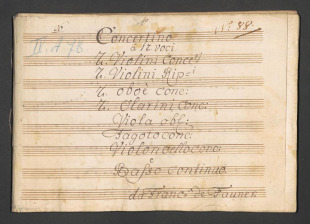 N.º 88.
II. d. 76
Concertino
a 12 voci
2. Violini Conc:
2. Violini Rip:
2. oboè Conc:
2. Clarini Conc:
Viola obl:
Fagoto conc:
Violoncello conc:
e
Basso continuo
di Franc: de Tauner